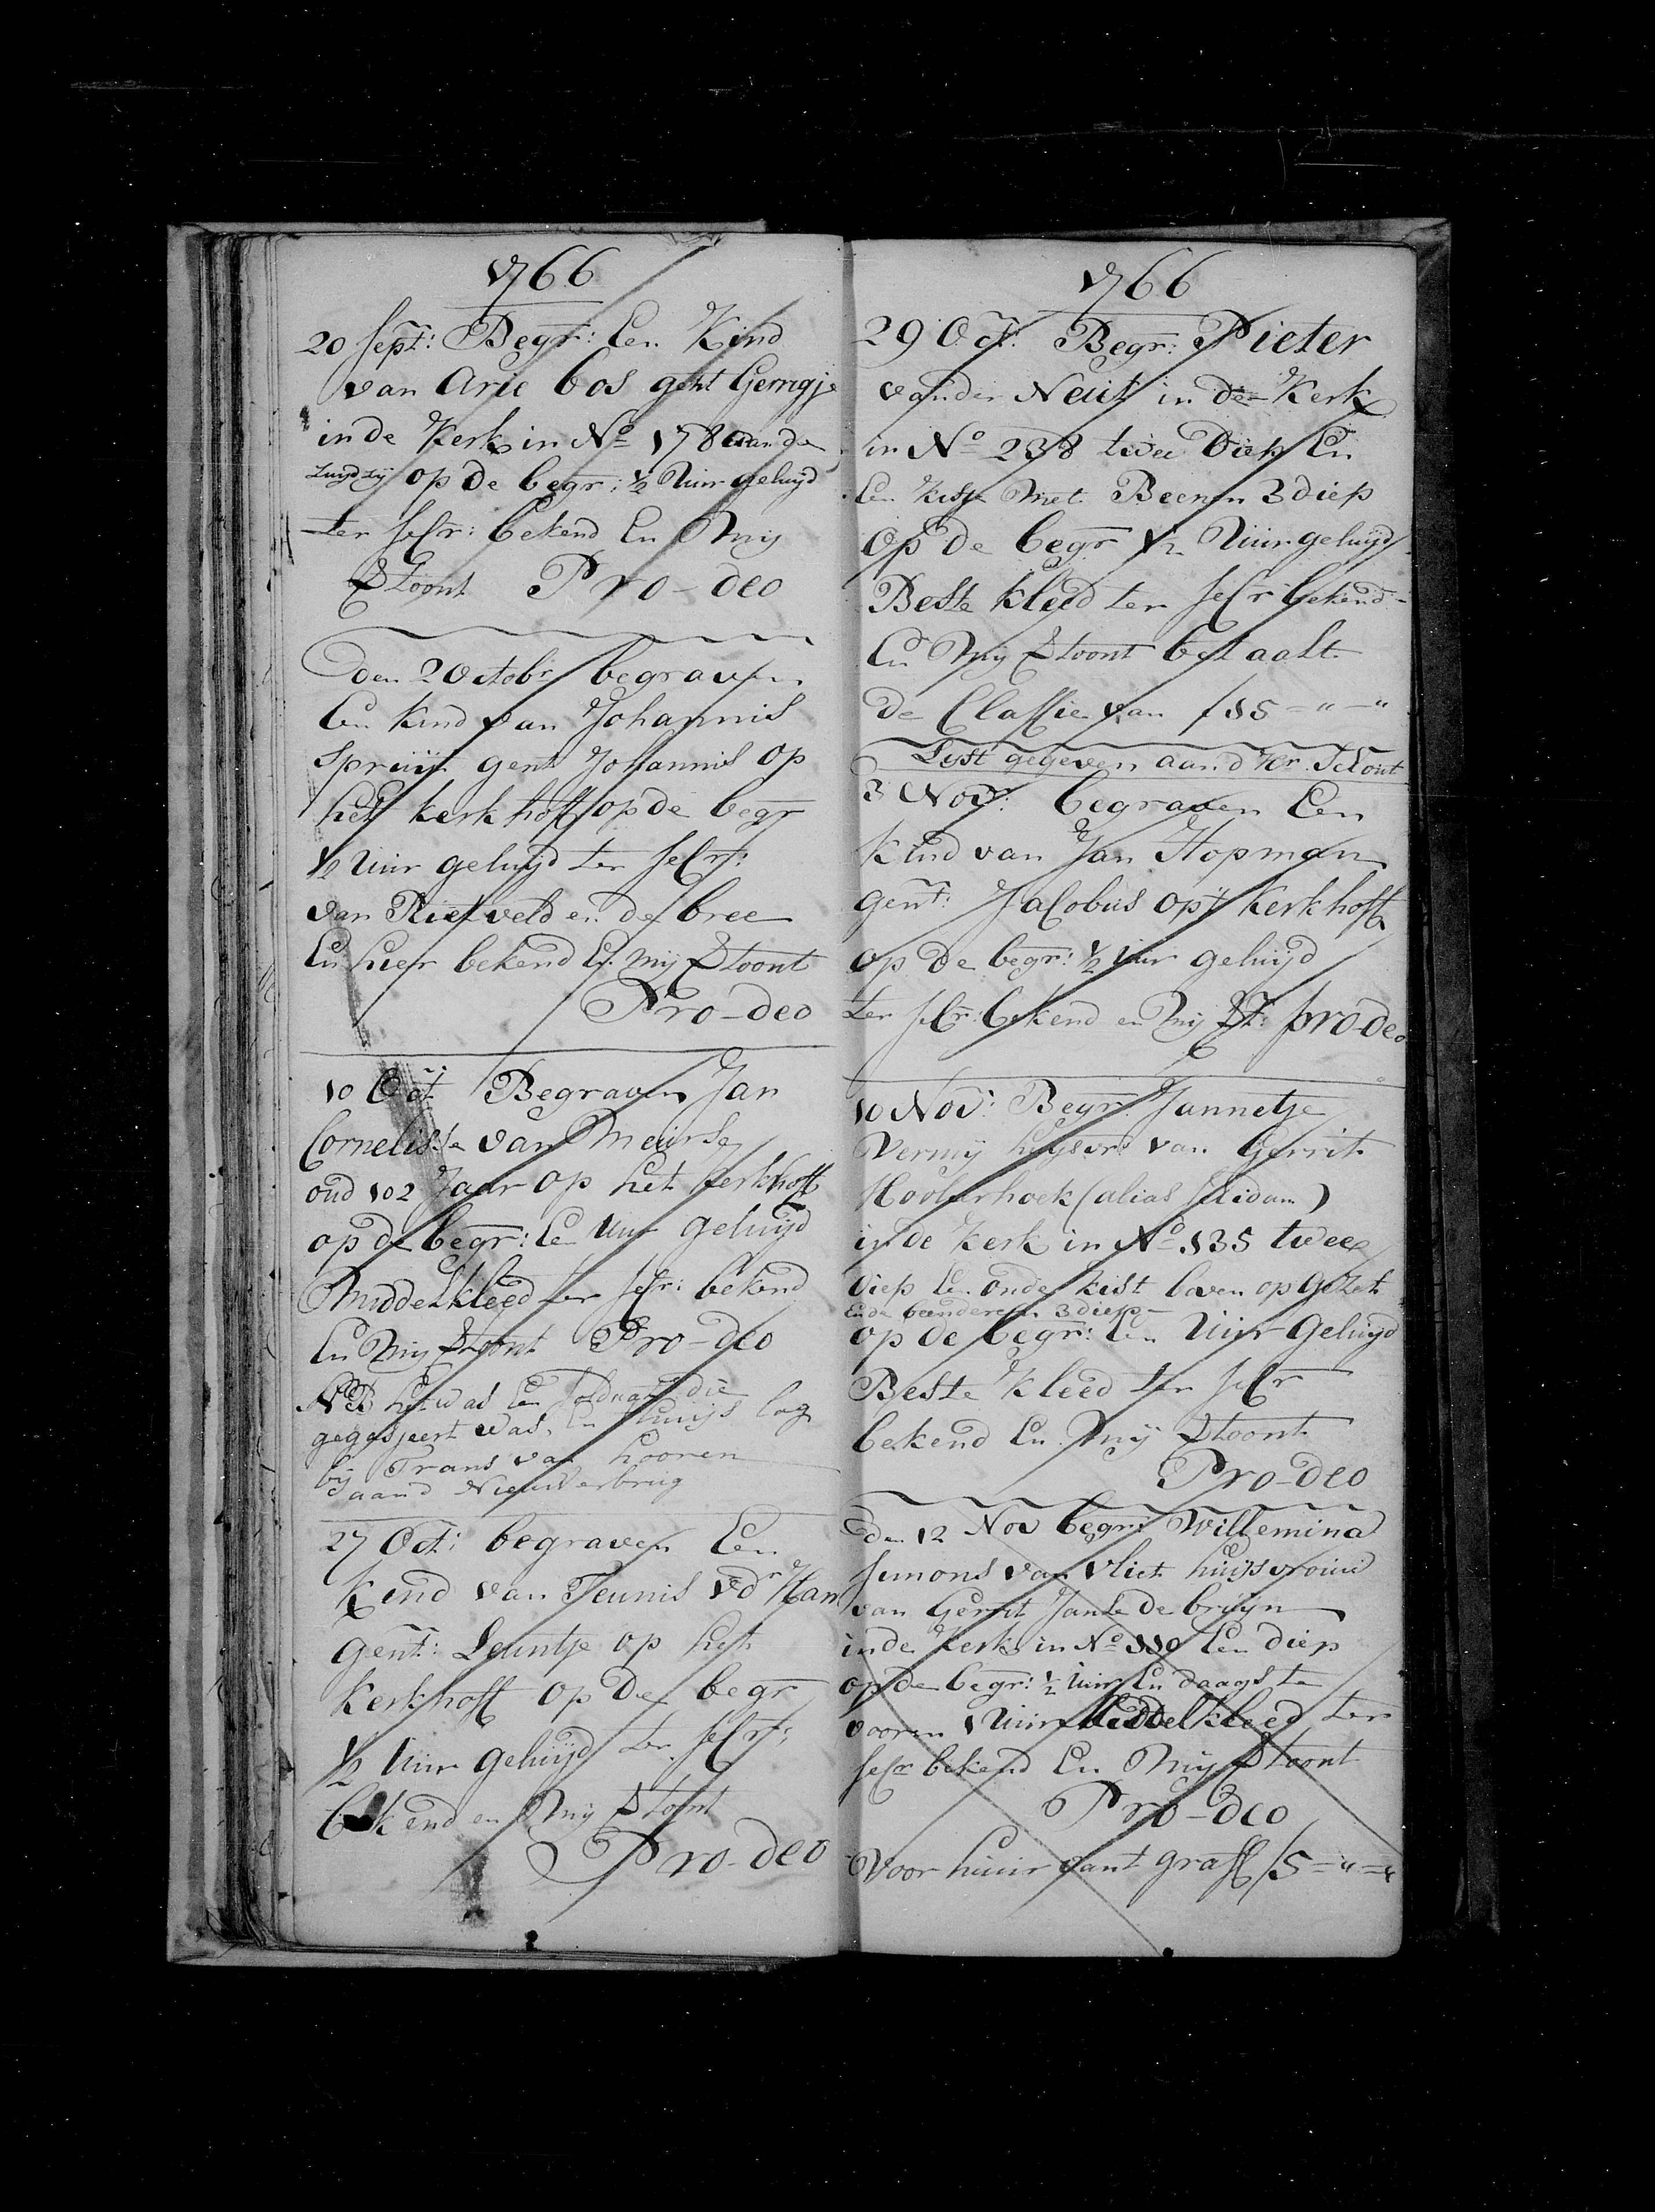 1766
20 Sept: Begr: Een Kind
van Arie bos gent Gerrigje
in de Kerk in No 178 aan de
Zuydzij op de begr: 1/2 Uur geluijd
ter secr: bekend En Mij
Etoont Pro-deo
den 2 Octobr begraven
Een Kind van Johannis
Spruijt gent Johannis op
het kerkhoff op de begr
1/2 Uur geluijd ter secr:
van Rietveld en de bree
En hier bekend En mij Etoont
Pro-deo
10 Oct Begraven Jan
Cornelisse van Meurse
oud 102 Jaar op het kerkhoff
op de begr: Een Uur geluijd
Middelkleed ter secr: bekend
En Mij Etoont Pro-deo
NB het was Een soldaat die
gegasjeert was, En thuijs lag
bij Frans van hooren
aand Nieuwerbrug
27 Oct: begraven Een
kind van Teunis vdr Ham
gent: Leuntje op het
kerkhoff op de begr
1/2 Uur geluijd ter secr:
bekend en Mij Etoont
Pro-deo
1766
29 Oct: Begr: Pieter
vander Neut in de Kerk
in No 238 twee Diep En
Een kistje Met Beenen 3 diep
Op de begr 1/2 Uur geluijd
Beste kleed ter secr bekend
En Mij Etoont betaalt
de Classie van f 15 - " - "
Lyst gegeven aan d Hr Schout
3 Nov: begraven Een
kind van Jan Hopman
gent: Jacobus op't kerkhoff
op de begr: 1/2 uur geluijd
ter secr: bekend en Mij Et: pro-deo
10 Nov: Begr: Jannetje
Vermij huijsvr van Gerrit
(alias
in de Kerk in No 135 twee
Diep Een oude kist boven op gezet
En de beenderen 3 diep
op de begr: Een Uur Geluijd
Beste Kleed ter secr
bekend En Mij Etoont
Pro-deo
den 12 Nov begr: Willemina
Simons van Vliet huijsvrouw
van Gerrit Janse De bruijn
in de Kerk in No 110 Een diep
op de begr: 1/2 Uur En daags te
vooren 1 Uur Middelkleed ter
secr bekend En Mij Etoont
Pro-deo
Voor huur vant graff f 5 - " - "